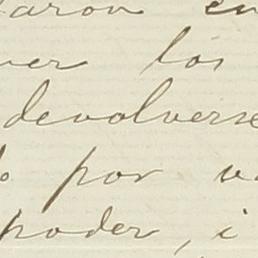 aron en
ver los
devolverse
por
poder, i